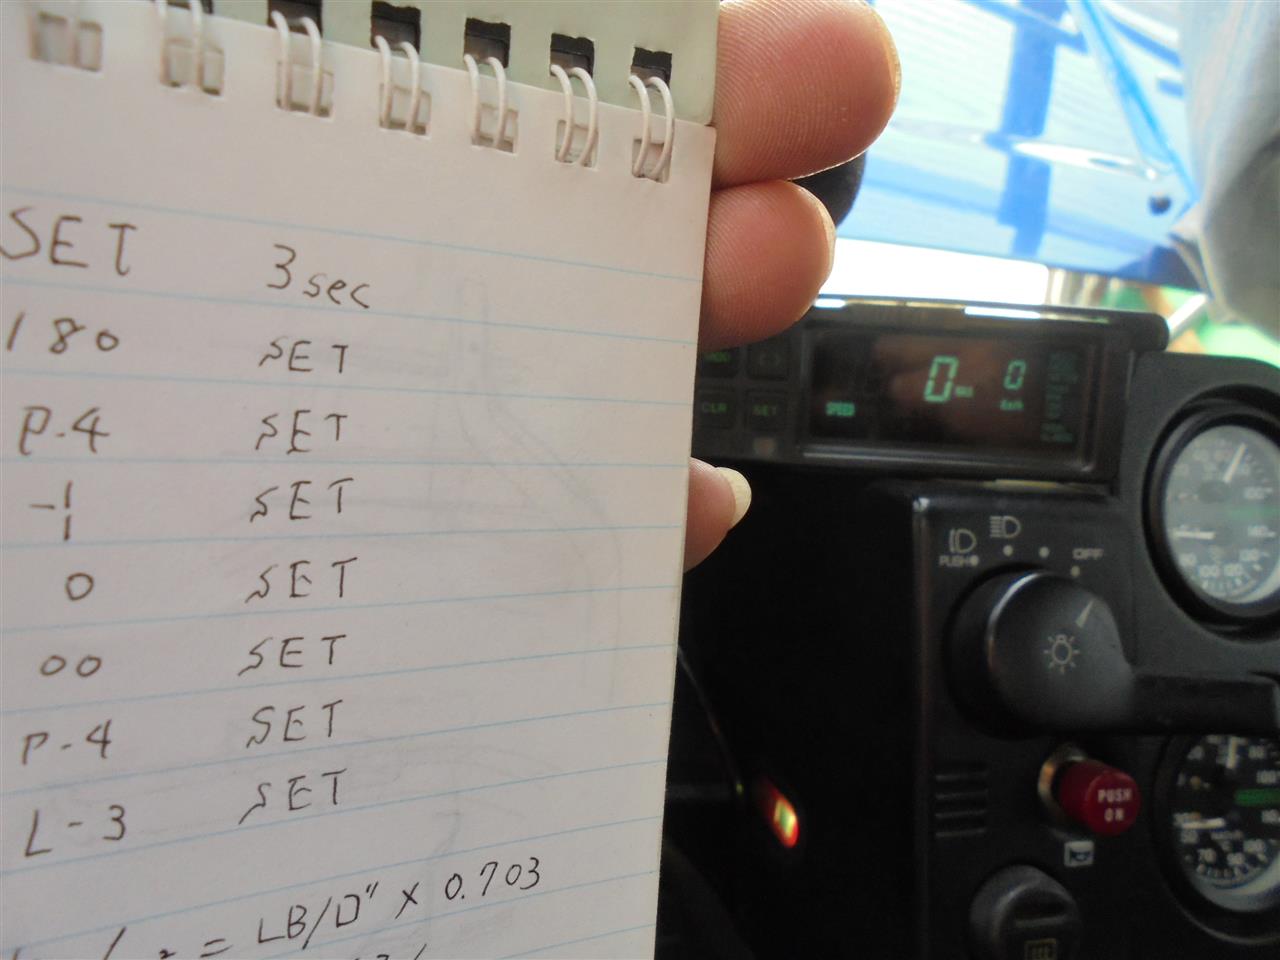 SET 3sec
180 SET
P.4 SET
0 SET
00 SET
P-4 SET
L-3 SET
= LB/D" × 0.703
CLR SET
SPEED
0 0
PUSH OFF
PUSH
ON